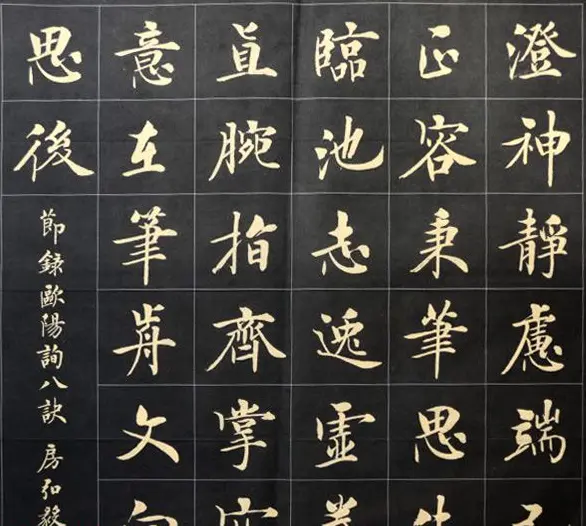 澄神靜慮端己
正容秉筆思生
臨池志逸虛拳
直腕指齊掌空
意在筆歬文向
思後
節錄歐陽詢八訣 房弘毅